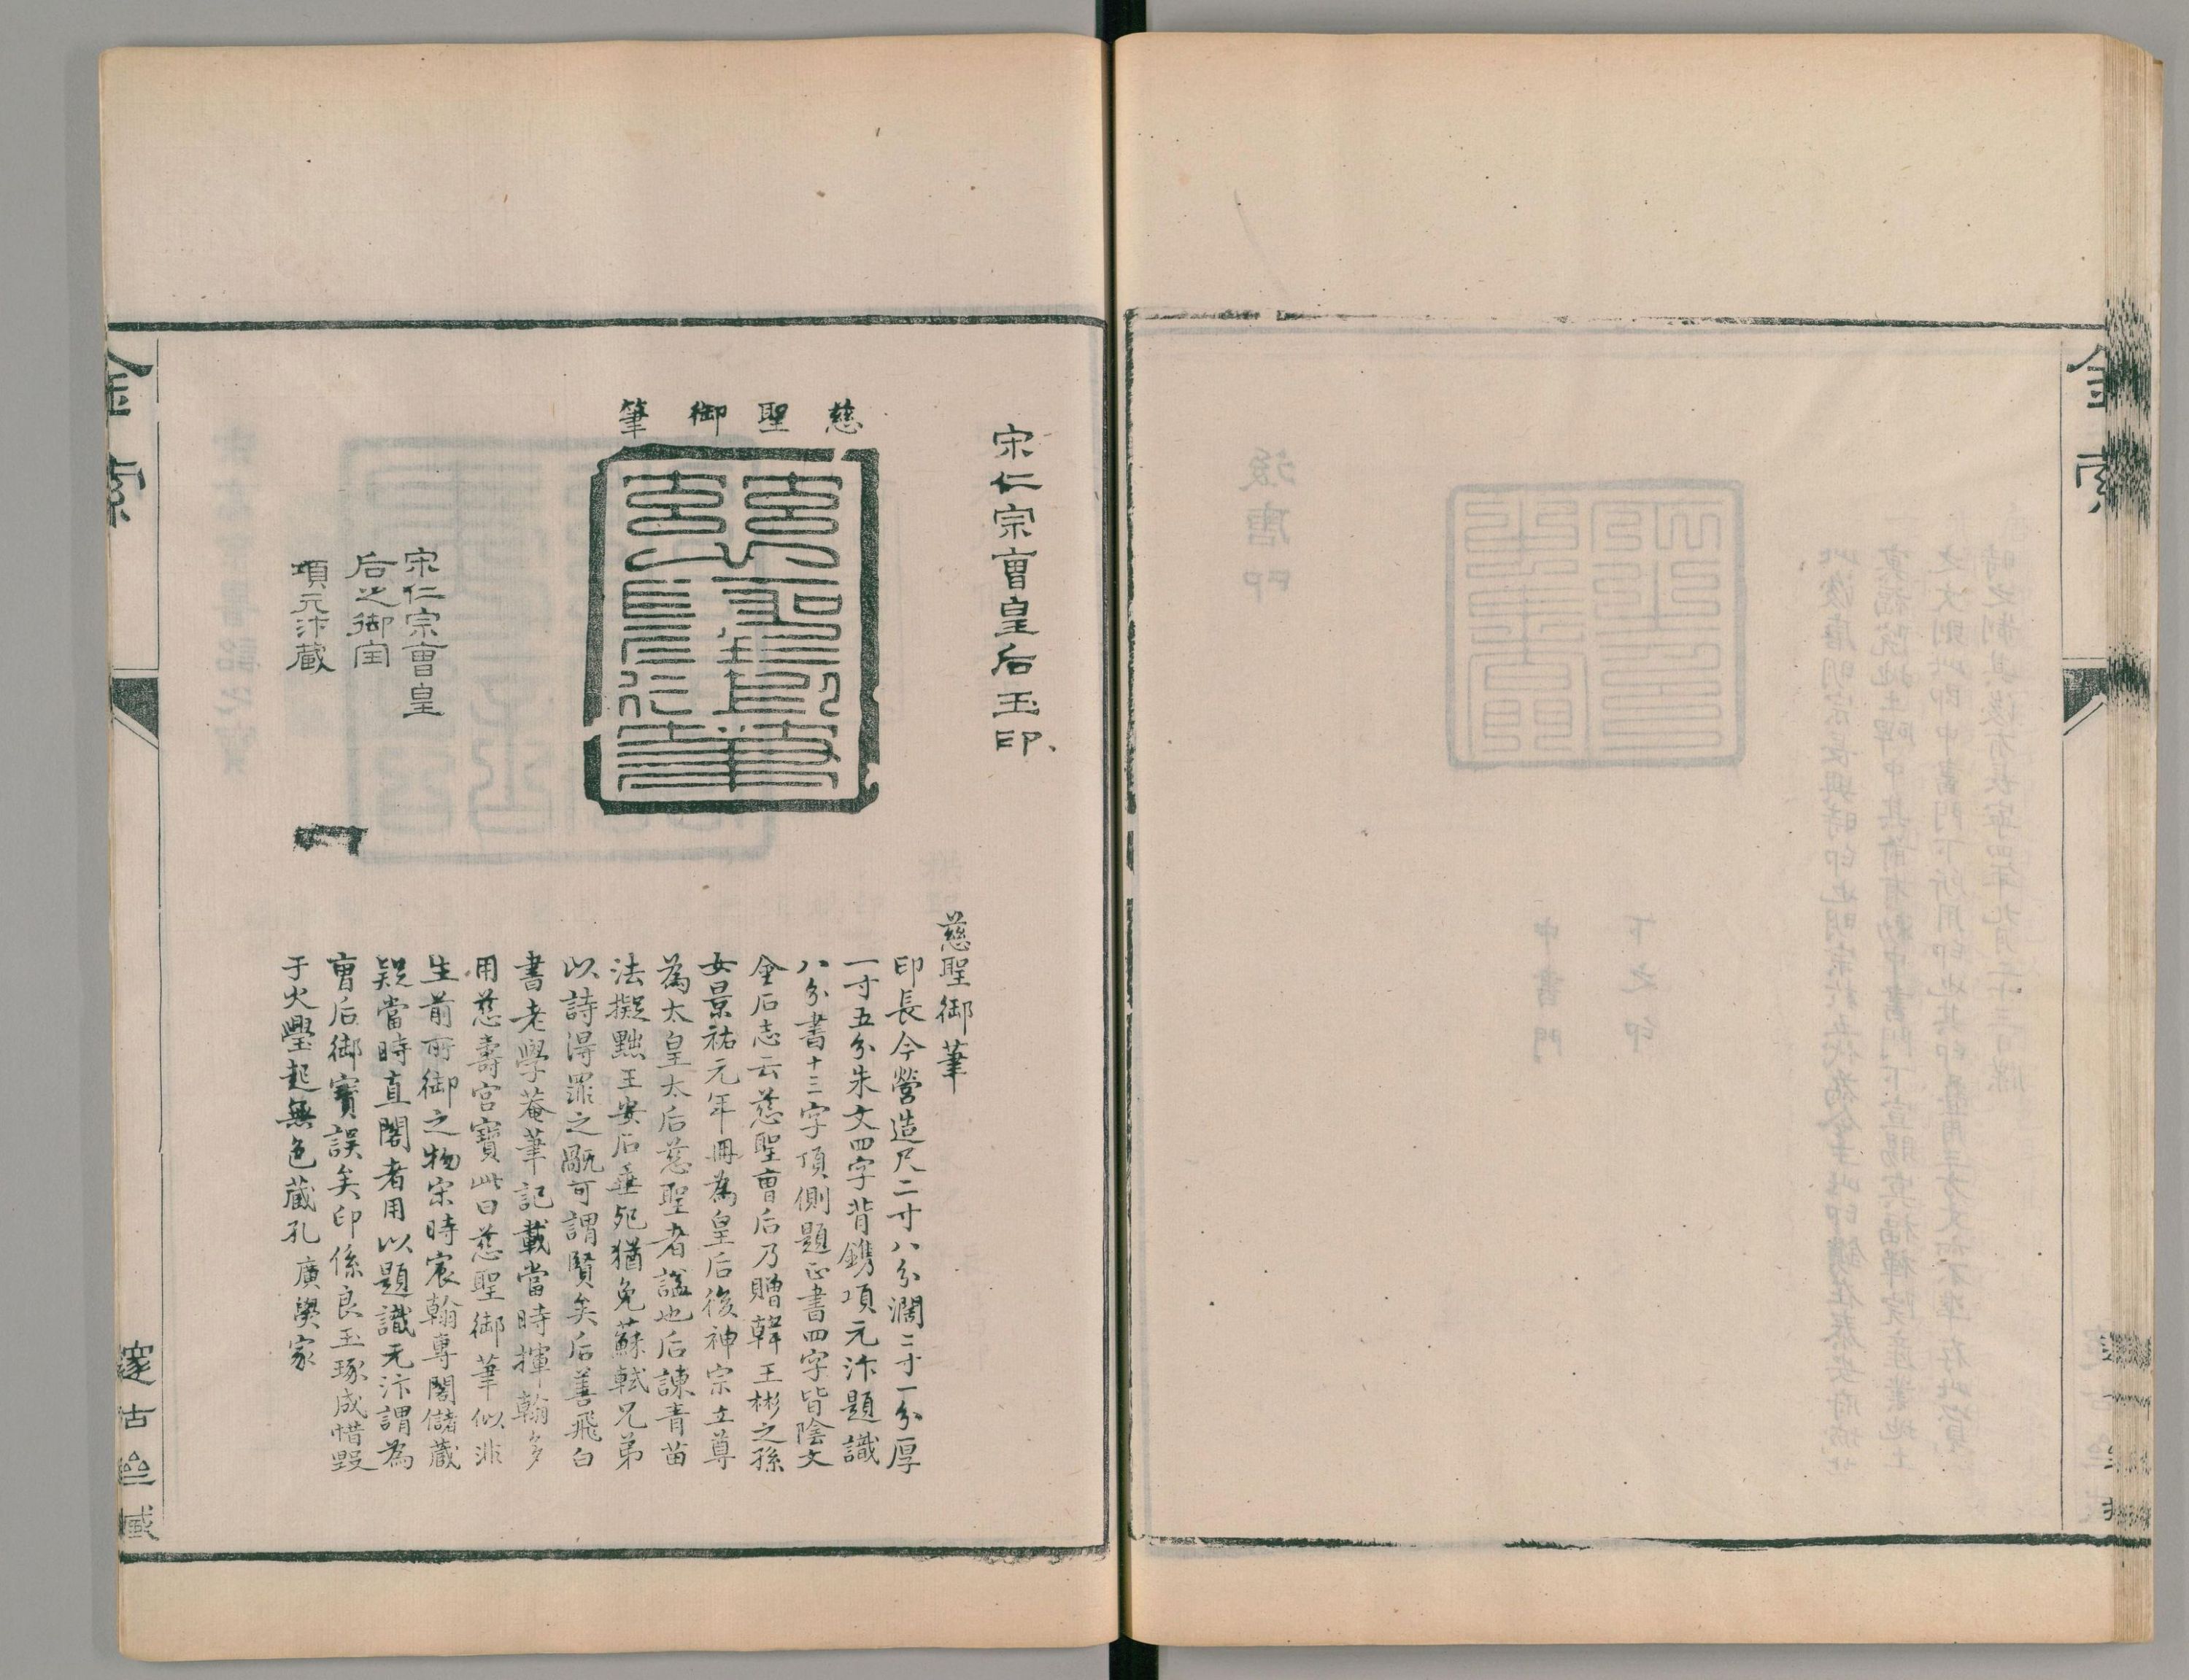 金索
宋仁宗曹皇后玉印
慈聖御筆
慈聖御筆
宋仁宗曹皇
后之御宝
項元汴蔵
慈聖御筆
印長今營造尺二寸八分濶二寸一分厚
一寸五分朱文四字背鐫項元汴題識
八分書十三字頂側題正書四字皆陰文
金石志云慈聖曹后乃贈韓王彬之孫
女景祐元年冊為皇后後神宗立尊
為太皇太后慈聖者諡也后諫青苗
法擬黜王安石垂死猶免蘇軾兄弟
以詩得罪之厰可謂賢矣后善飛白
書老學菴筆記載當時揮翰多
用慈壽宮寶此曰慈聖御筆似非
生前所御之物宋時宸翰專閣儲蔵
疑當時直閣者用以題識元汴謂為
曹后御寶誤矣印係良玉琢成惜毀
于火壆起無色蔵孔廣㮤家
金索
邃古齋藏